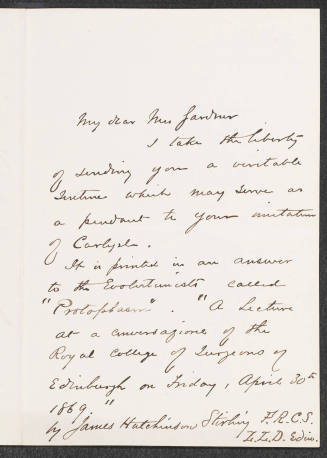 My dear Mrs Gardner
I take the liberty
of sending you a veritable
which may serve as
a pendant to your imitation
of Carlyle.
It is printed in an answer
to the Evolutionists called
"Protoplasm". "A Lecture
at a conversazione of the
Royal College of Surgeons of
Edinburgh on Friday, April 30th
1869."
by James Hutchinson Stirling F.R.C.S.
L.L.D. Edin.